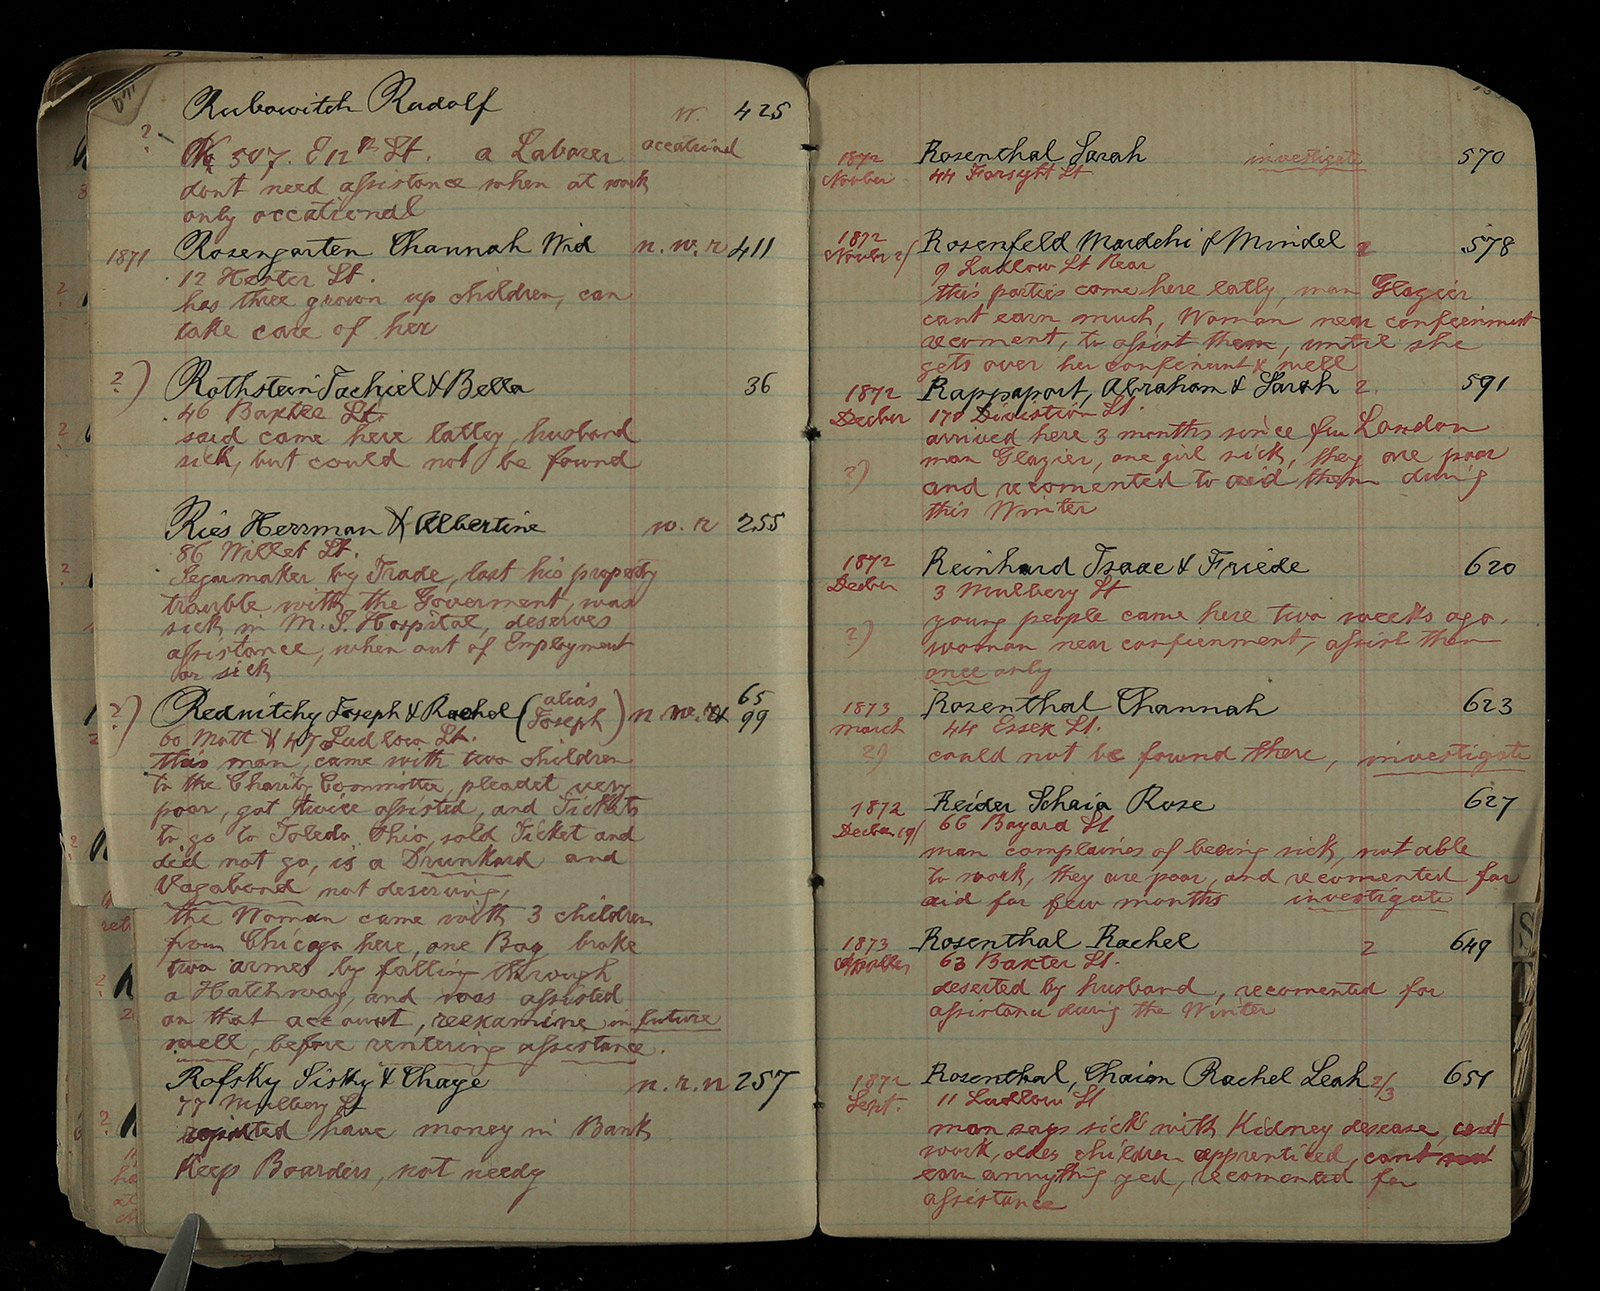 Rubowitch Rudolf w. 425
? No 507. E 12th St. a Laborer occational
dont need assistance when at work
only occational
1871 Rosengarten Channah Wid n. w. r 411
12 Hester St.
has three grown up children, can
take care of her
?) Rothstein Jachiel & Bella 36
46 Baxter St.
said came here latley, husband
sick, but could not be found
Ries Herrman & Albertine w. r 255
86 Willet St.
Segarmaker by Trade, lost his property
trouble with the Goverment, was
sick in M. S. Hospital, deserves
assistance, when out of Employment
or sick
?) Rednitchy Joseph & Rachel (alias Joseph) n. w. r. & 65 99
60 Mott & 47 Ludlow St.
this man, came with two children
to the Charity Committee, pleadet very
poor, got twice assisted, and Tickets
to go to Toledo Ohio, sold Ticket and
did not go, is a Drunkard and
Vagabond not deserving,
the Woman came with 3 children
from Chicago here, one Boy broke
two armes by falling through
a Hatchway, and was assisted
on that account, reexamine in future
well, before rentering assistance.
Rofsky Sisky & Chaye n. r. n 257
77 Mulbery St
reported have money in Bank
Keep Boarders, not needy
1872 Rosenthal Sarah investigate 570
November 44 Forsyht St
1872 Rosenfeld Mordchi & Mindel 2 578
Novbr 9 Ludlow St Rear
this parties came here latly, man Glazier
cant earn much, Woman near confeinment
recoment, to assist them, until she
gets over her confeinent & well
1872 Rappaport, Abraham & Sarah 2. 591
Decber 170 Divistion St.
arrived here 3 months since fm London
?) man Glazier, one girl sick, they are poor
and recomented to aid them during
this Winter
1872 Reinhard Isaac & Friede 620
Decber 3 Mulbery St
young people came here two weeks ago.
?) woman near confeenment, assist them
once only
1873 Rosenthal Channah 623
March 44 Essex St.
?) could not be found there, investigate
1872 Reider Schaia Rose 627
Decber 19/ 66 Bayard St
man complaines of beeing sick, not able
to work, they are poor, and recomented for
aid for few months investigate
1873 Rosenthal Rachel 2 649
63 Baxter St.
deserted by husband, recomented for
assistance during the Winter
1872 Rosenthal, Chaim Rachel Leah 2/3 651
Sept. 11 Ludlow St
man says sick with Kidney desease, cant
work, older children apprenticed, cant
earn annything yed, recomented for
assistance